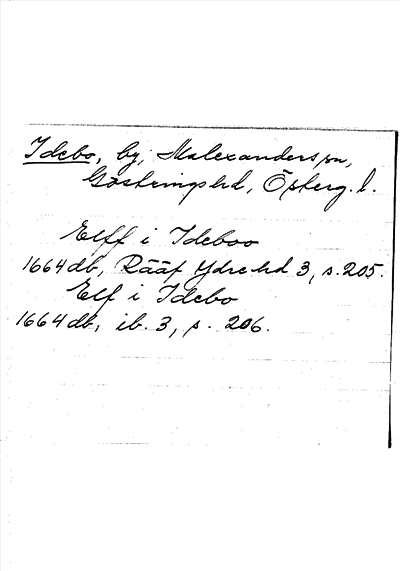 Idebo, by, Malexanders sn,
Göstrings hd, Österg. l.
Elff i Ideboo
1664 db, Rääf Ydre hd 3, s. 205.
Elf i Idebo
1664 db, ib. 3, s. 206.